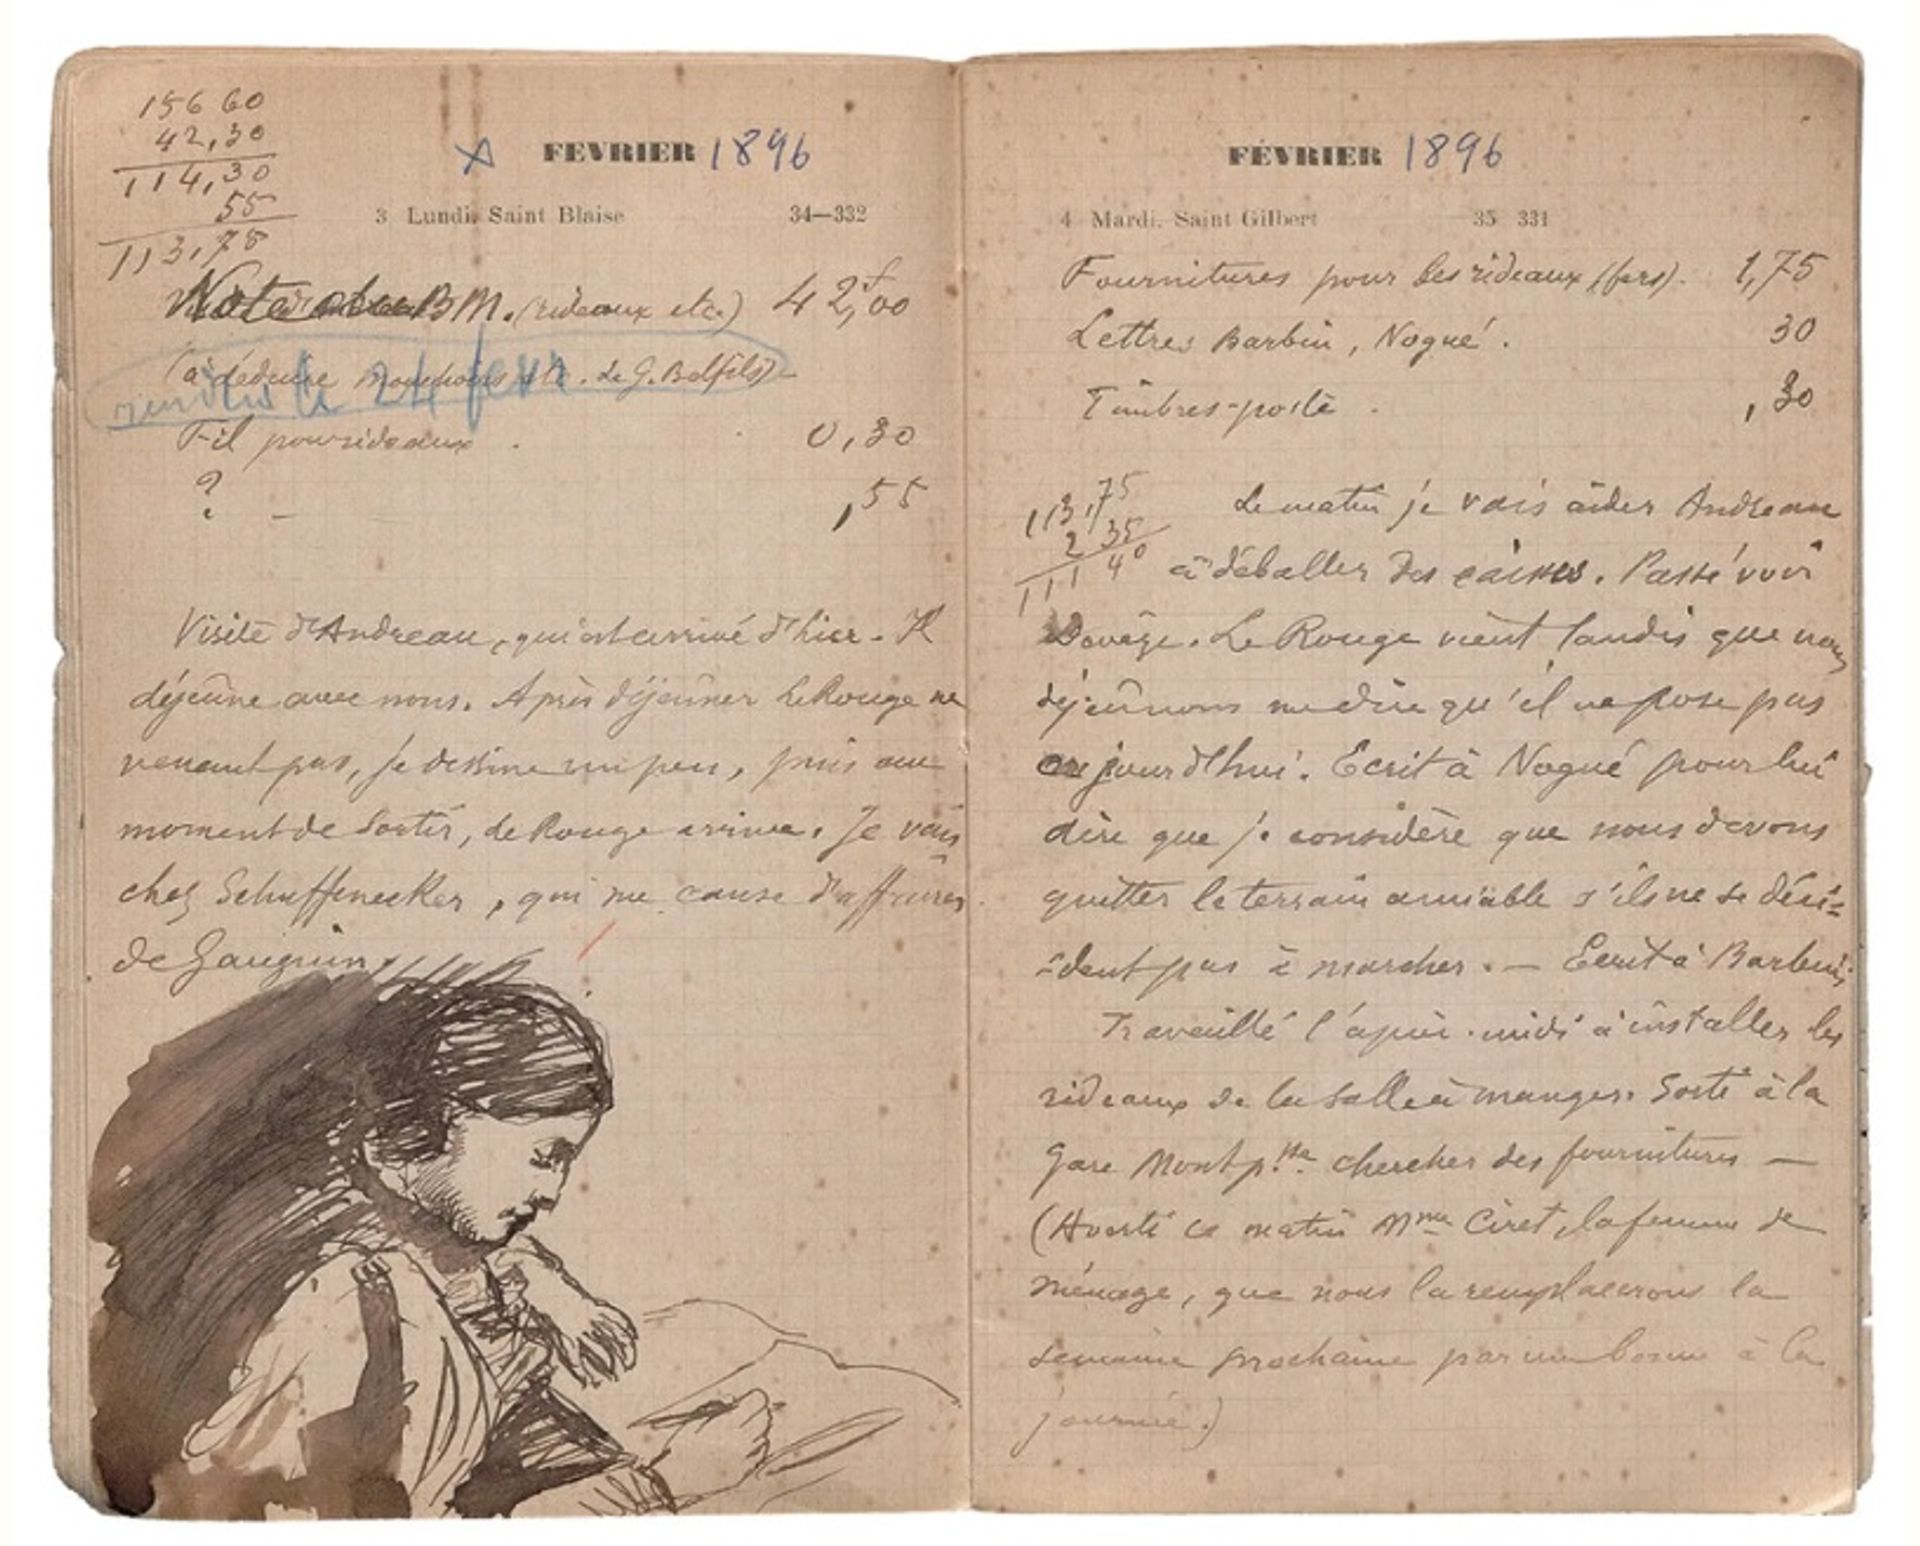 156 60
42,30
114,30
55
113,75
X FEVRIER 1896
3 Lundi. Saint Blaise 34—332
Note BM. (rideaux etc.) 42,f00
(à déduire mouchoirs etc. de G. Belfils)
rendus le 24 fevr
Fil pour rideaux . 0,30
? - ,55
Visite d'Andreau, qui est arrivé d'hier. Il
déjeûne avec nous. Après déjeûner Le Rouge ne
venant pas, je dessine un peu, puis au
moment de sortir, Le Rouge arrive. Je vais
chez Schuffenecker, qui me cause d'affaires
de Gauguin.
FÉVRIER 1896
4 Mardi. Saint Gilbert 35 331
Fournitures pour les rideaux (fers). 1,75
Lettres Barbin, Nogué. 30
Timbres-poste . ,30
113,75
2 35
111 40
Le matin je vais aider Andreau
à déballer des caisses. Passé voir
. Le Rouge vient tandis que nous
déjeûnons me dire qu'il ne pose pas
aujourd'hui. Ecrit à Nogué pour lui
dire que je considère que nous devons
quitter le terrain amiable s'ils ne se déci=
=dent pas à marcher. — Ecrit à Barbin,
Travaillé l'après-midi à installer les
rideaux de la salle à manger. Sorti à la
gare Montp.sse chercher des fournitures —
(Averti ce matin Mme Ciret, la femme de
ménage, que nous la remplacerons la
semaine prochaine par une bonne à la
journée.)